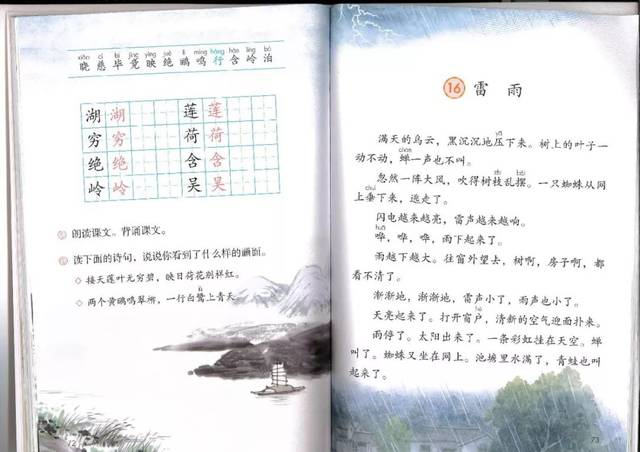 xiǎo cí bì jìng yìng jué lí míng háng hán lǐng bó
晓 慈 毕 竟 映 绝 鹂 鸣 行 含 岭 泊
湖 湖 莲 莲
穷 穷 荷 荷
绝 绝 含 含
岭 岭 吴 吴
朗读课文。背诵课文。
读下面的诗句，说说你看到了什么样的画面。
◇ 接天莲叶无穷碧，映日荷花别样红。
lù
◇ 两个黄鹂鸣翠柳，一行白鹭上青天。
72
16 雷 雨
yā
满天的乌云，黑沉沉地压下来。树上的叶子一
chán
动不动，蝉一声也不叫。
zhī bǎi
忽然一阵大风，吹得树枝乱摆。一只蜘蛛从网
chuí
上垂下来，逃走了。
闪电越来越亮，雷声越来越响。
huā
哗，哗，哗，雨下起来了。
雨越下越大。往窗外望去，树啊，房子啊，都
看不清了。
渐渐地，渐渐地，雷声小了，雨声也小了。
hù
天亮起来了。打开窗户，清新的空气迎面扑来。
雨停了。太阳出来了。一条彩虹挂在天空。蝉
叫了。蜘蛛又坐在网上。池塘里水满了，青蛙也叫
起来了。
73